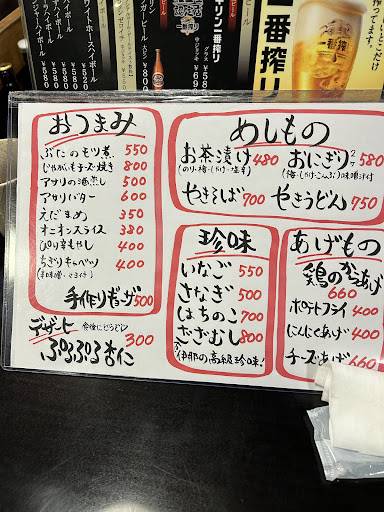 キリン
一番搾り
グラス ¥58
一番搾り
おつまみ
ぶたのもつ煮 550
じゃがいもチーズ焼き 800
アサリの酒蒸し 500
アサリバター 600
えだまめ 350
オニオンスライス 380
ぴり辛もやし 400
ちぎりキャベツ 400
手作りギョーザ 500
デザート 食後にどうぞ
ぷるぷる杏仁 300
めしもの
お茶漬け 480
おにぎり 2ケ 580
やきそば 700
やきうどん 750
珍味
いなご 550
さなぎ 500
はちのこ 700
ざざむし 800
伊那の高級珍味!
あげもの
鶏のからあげ
660
ポテトフライ 400
にんにくあげ 400
チーズあげ 660